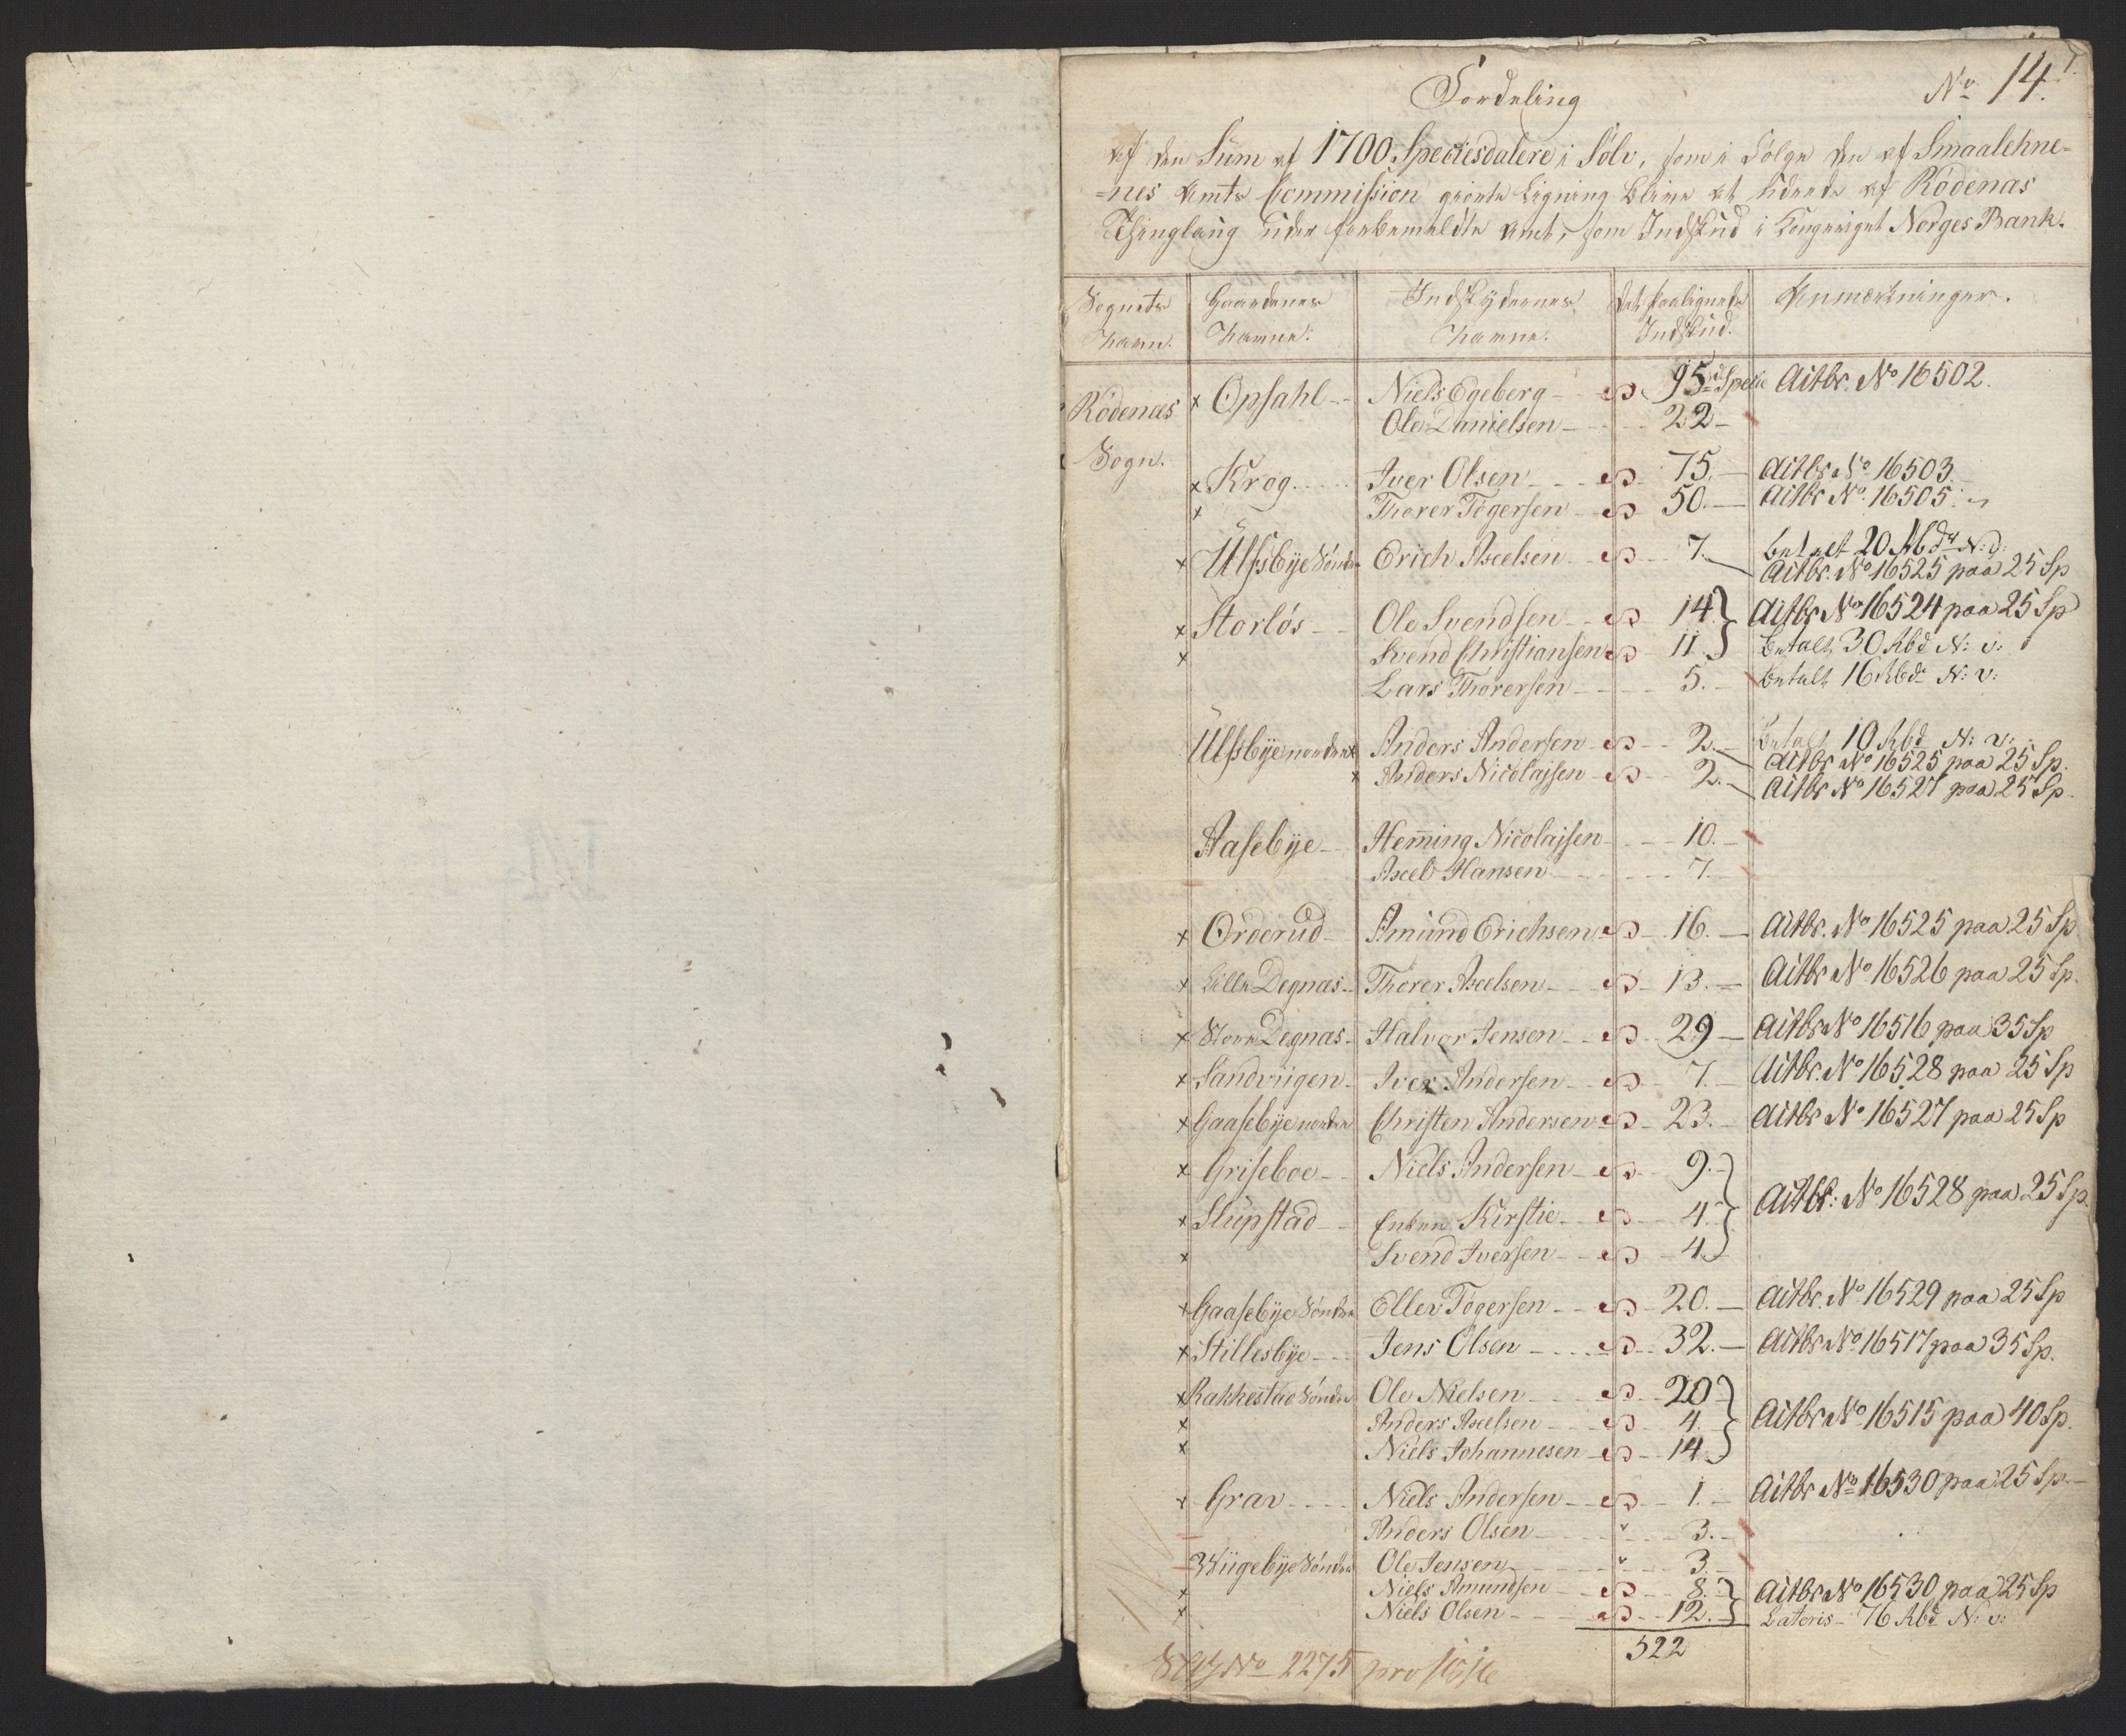 No 14.
Fordeling
af den Sum af 1700 Speciesdalere i Sølv, som i Følge den af Smaalehne-
=nes Amts Commission giorte Ligning bliver at udrede af Rödenas
Thinglaug under forbemeldte Amt, som Indskud i Kongeriget Norges Bank.
Sognets Navn. Gaardenes Navne. Indskydernes Navne. Det paalignede Indskud. Anmærkninger.
Rödenas Sogn.
x Opsahl Niels Egeberg 95 Specie Aitbr. No 16502.
Ole Danielsen 22
x Krog Iver Olsen 75. Aitbr No 16503
x Thorer Tögersen 50. Aitbr No 16505
x Ülfsbÿe Söndre Erich Axelsen 7. betalt 20 Rbd N: v:
Aitbr. No 16525 paa 25 Sp
x Storlös Ole Svendsen 14 Aitbr No 16524 paa 25 Sp
x Svend Christiansen 11 betalt 30 Rbd N: v:
Lars Thorersen 5. betalt 16 Rbd N: v:
Ülfsbÿe nordre x Anders Andersen 2. betalt 10 Rbd N: v:
Aitbr No 16525 paa 25 Sp.
x Anders Nicolajsen 2. Aitbr No 16527 paa 25 Sp.
Aasebÿe Hem̄ing Nicolajsen 10.
Axel Hansen 7.
x Orderud Amund Erichsen 16. Aitbr. No 16525 paa 25 Sp
x Lille Degnas Thorer Axelsen 13. Aitbr No 16526 paa 25 Sp.
x Store Degnas Halvor Jensen 29 Aitbr No 16516 paa 35 Sp
x Sandviigen Iver Andersen 7. Aitbr. No 16528 paa 25 Sp
x Gaasebÿe nordre Christen Andersen 23. Aitbr No 16527 paa 25 Sp
x Griseboe Niels Andersen 9.
Aitbr: No 16528 paa 25 Sp.
x Slupstad Enken Kirstie 4.
x Svend Iversen 4
x Gaasebÿe Söndre Ellev Tögersen 20. Aitbr. No 16529 paa 25 Sp
x Stillesbÿe Jens Olsen 32. Aitbr No 16517 paa 35 Sp.
x Rakkestad Söndre Ole Nielsen 20
x Anders Axelsen 4. Aitbr No 16515 paa 40 Sp.
x Niels Johannesen 14
x Grav Niels Andersen 1. Aitbr No 16530 paa 25 Sp.
Anders Olsen 3.
Wiigebÿe Söndre Ole Jensen 3.
x Niels Amundsen 8. Aitbr No 16530 paa 25 Sp
x Niels Olsen 12. Lateris 76 Rbd N: v:
522
No 2275